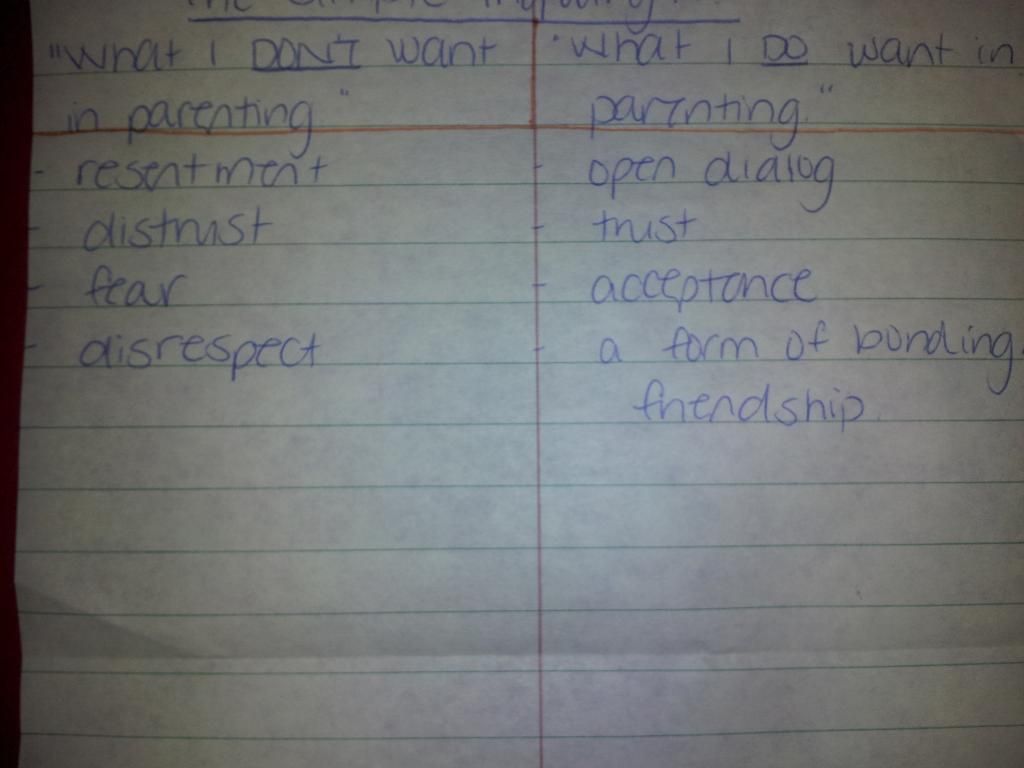 The Simple
"What I DON'T want
in parenting"
- resentment
- distrust
- fear
- disrespect
"What I DO want in
parenting."
- open dialog
- trust
- acceptance
- a form of bonding.
friendship.